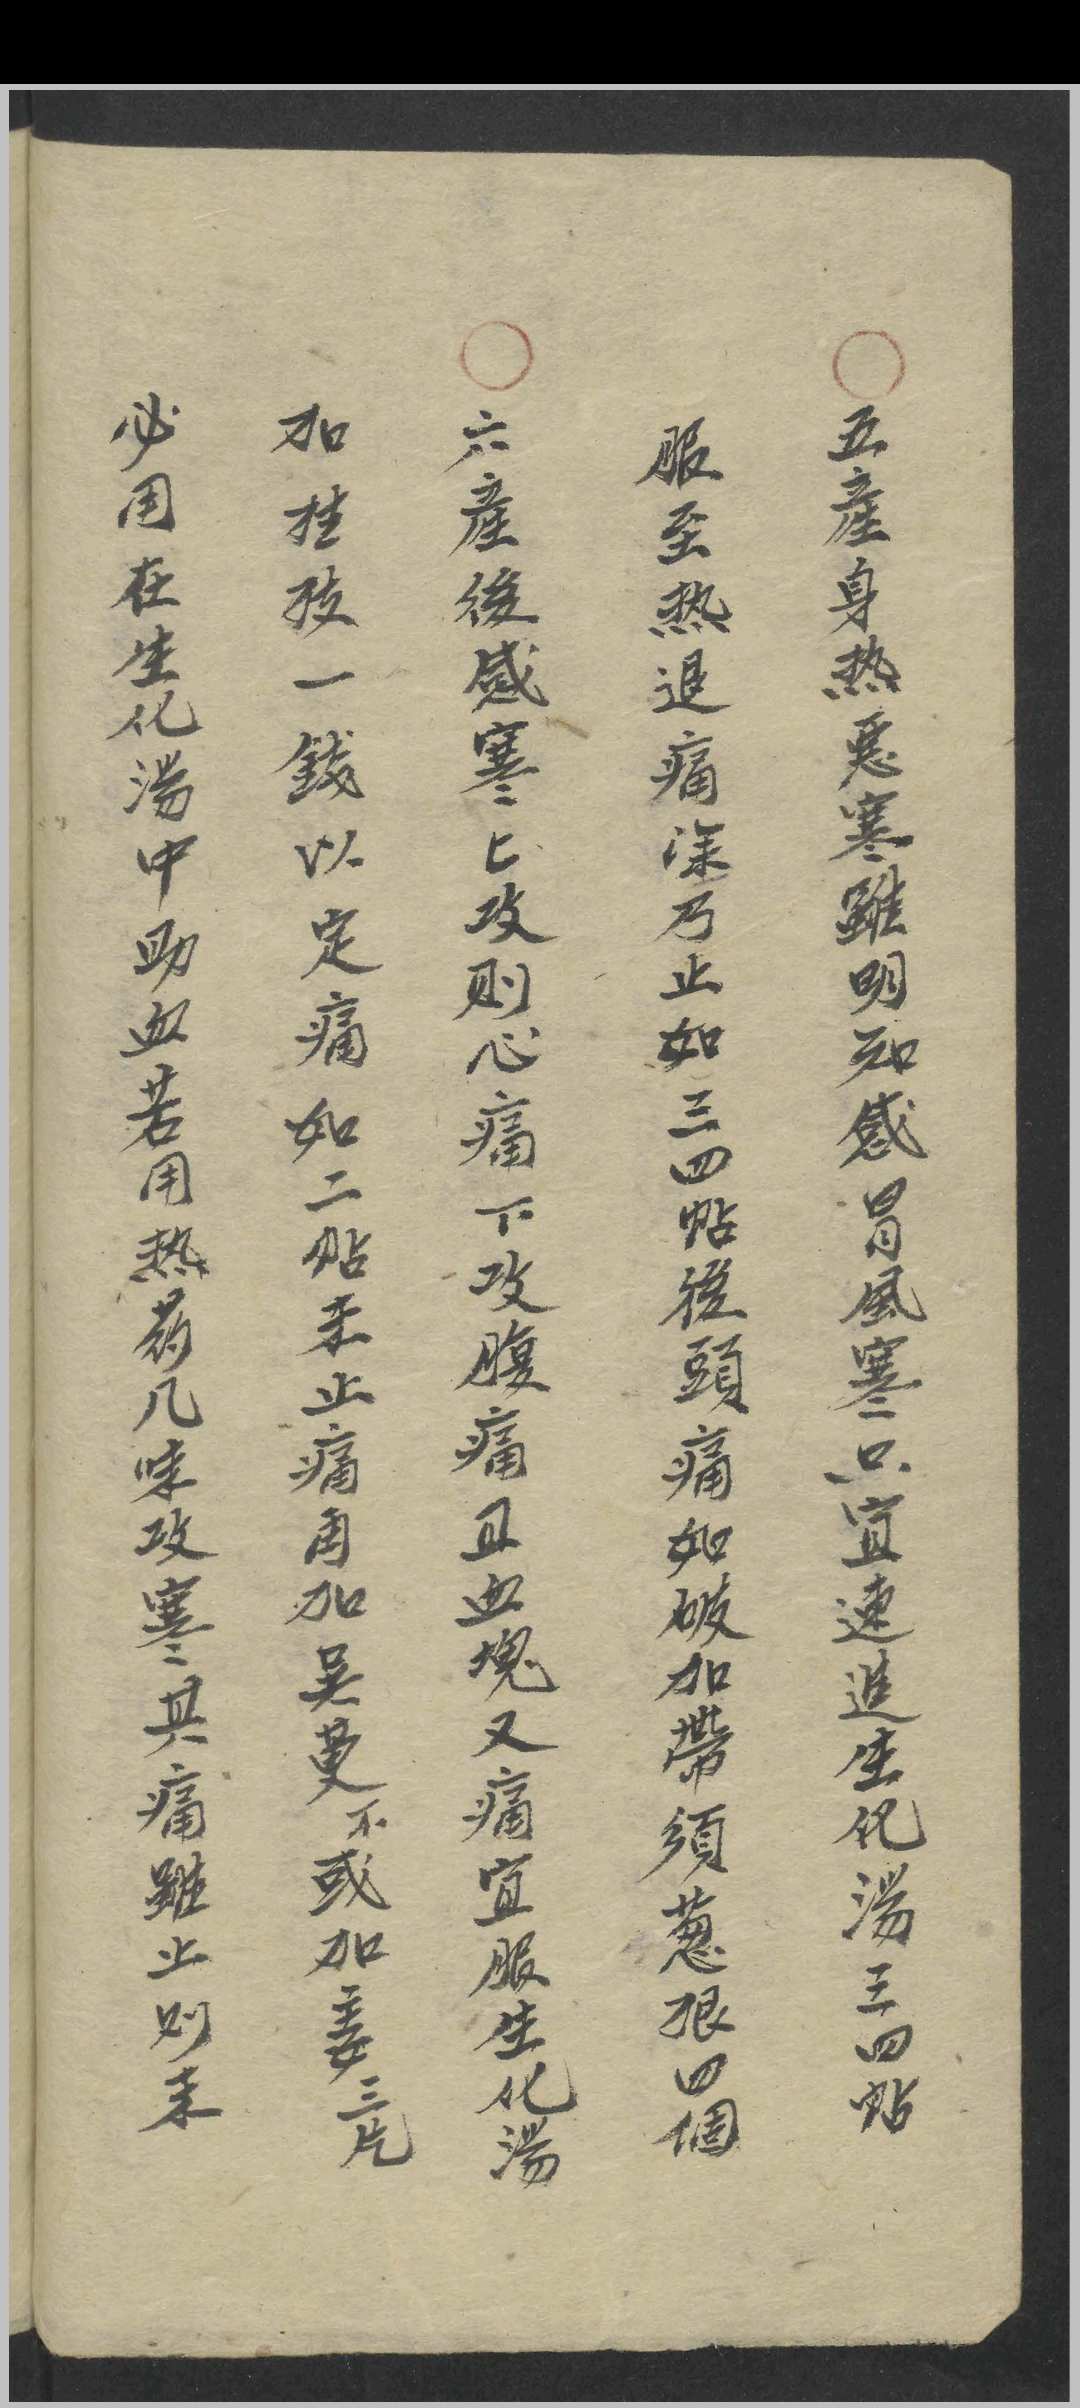 五產身热惡寒雖明知感冒風寒只宜速進生化湯三四帖
服至热退痛除乃止如三四帖後頭痛如破加帶須蔥根四個
六產後感寒上攻則心痛下攻腹痛且血塊又痛宜服生化湯
加桂枝一錢以定痛如二帖未止痛用加吴萸不或加姜三片
必用在生化湯中助血若用热药几味攻寒其痛雖止则未